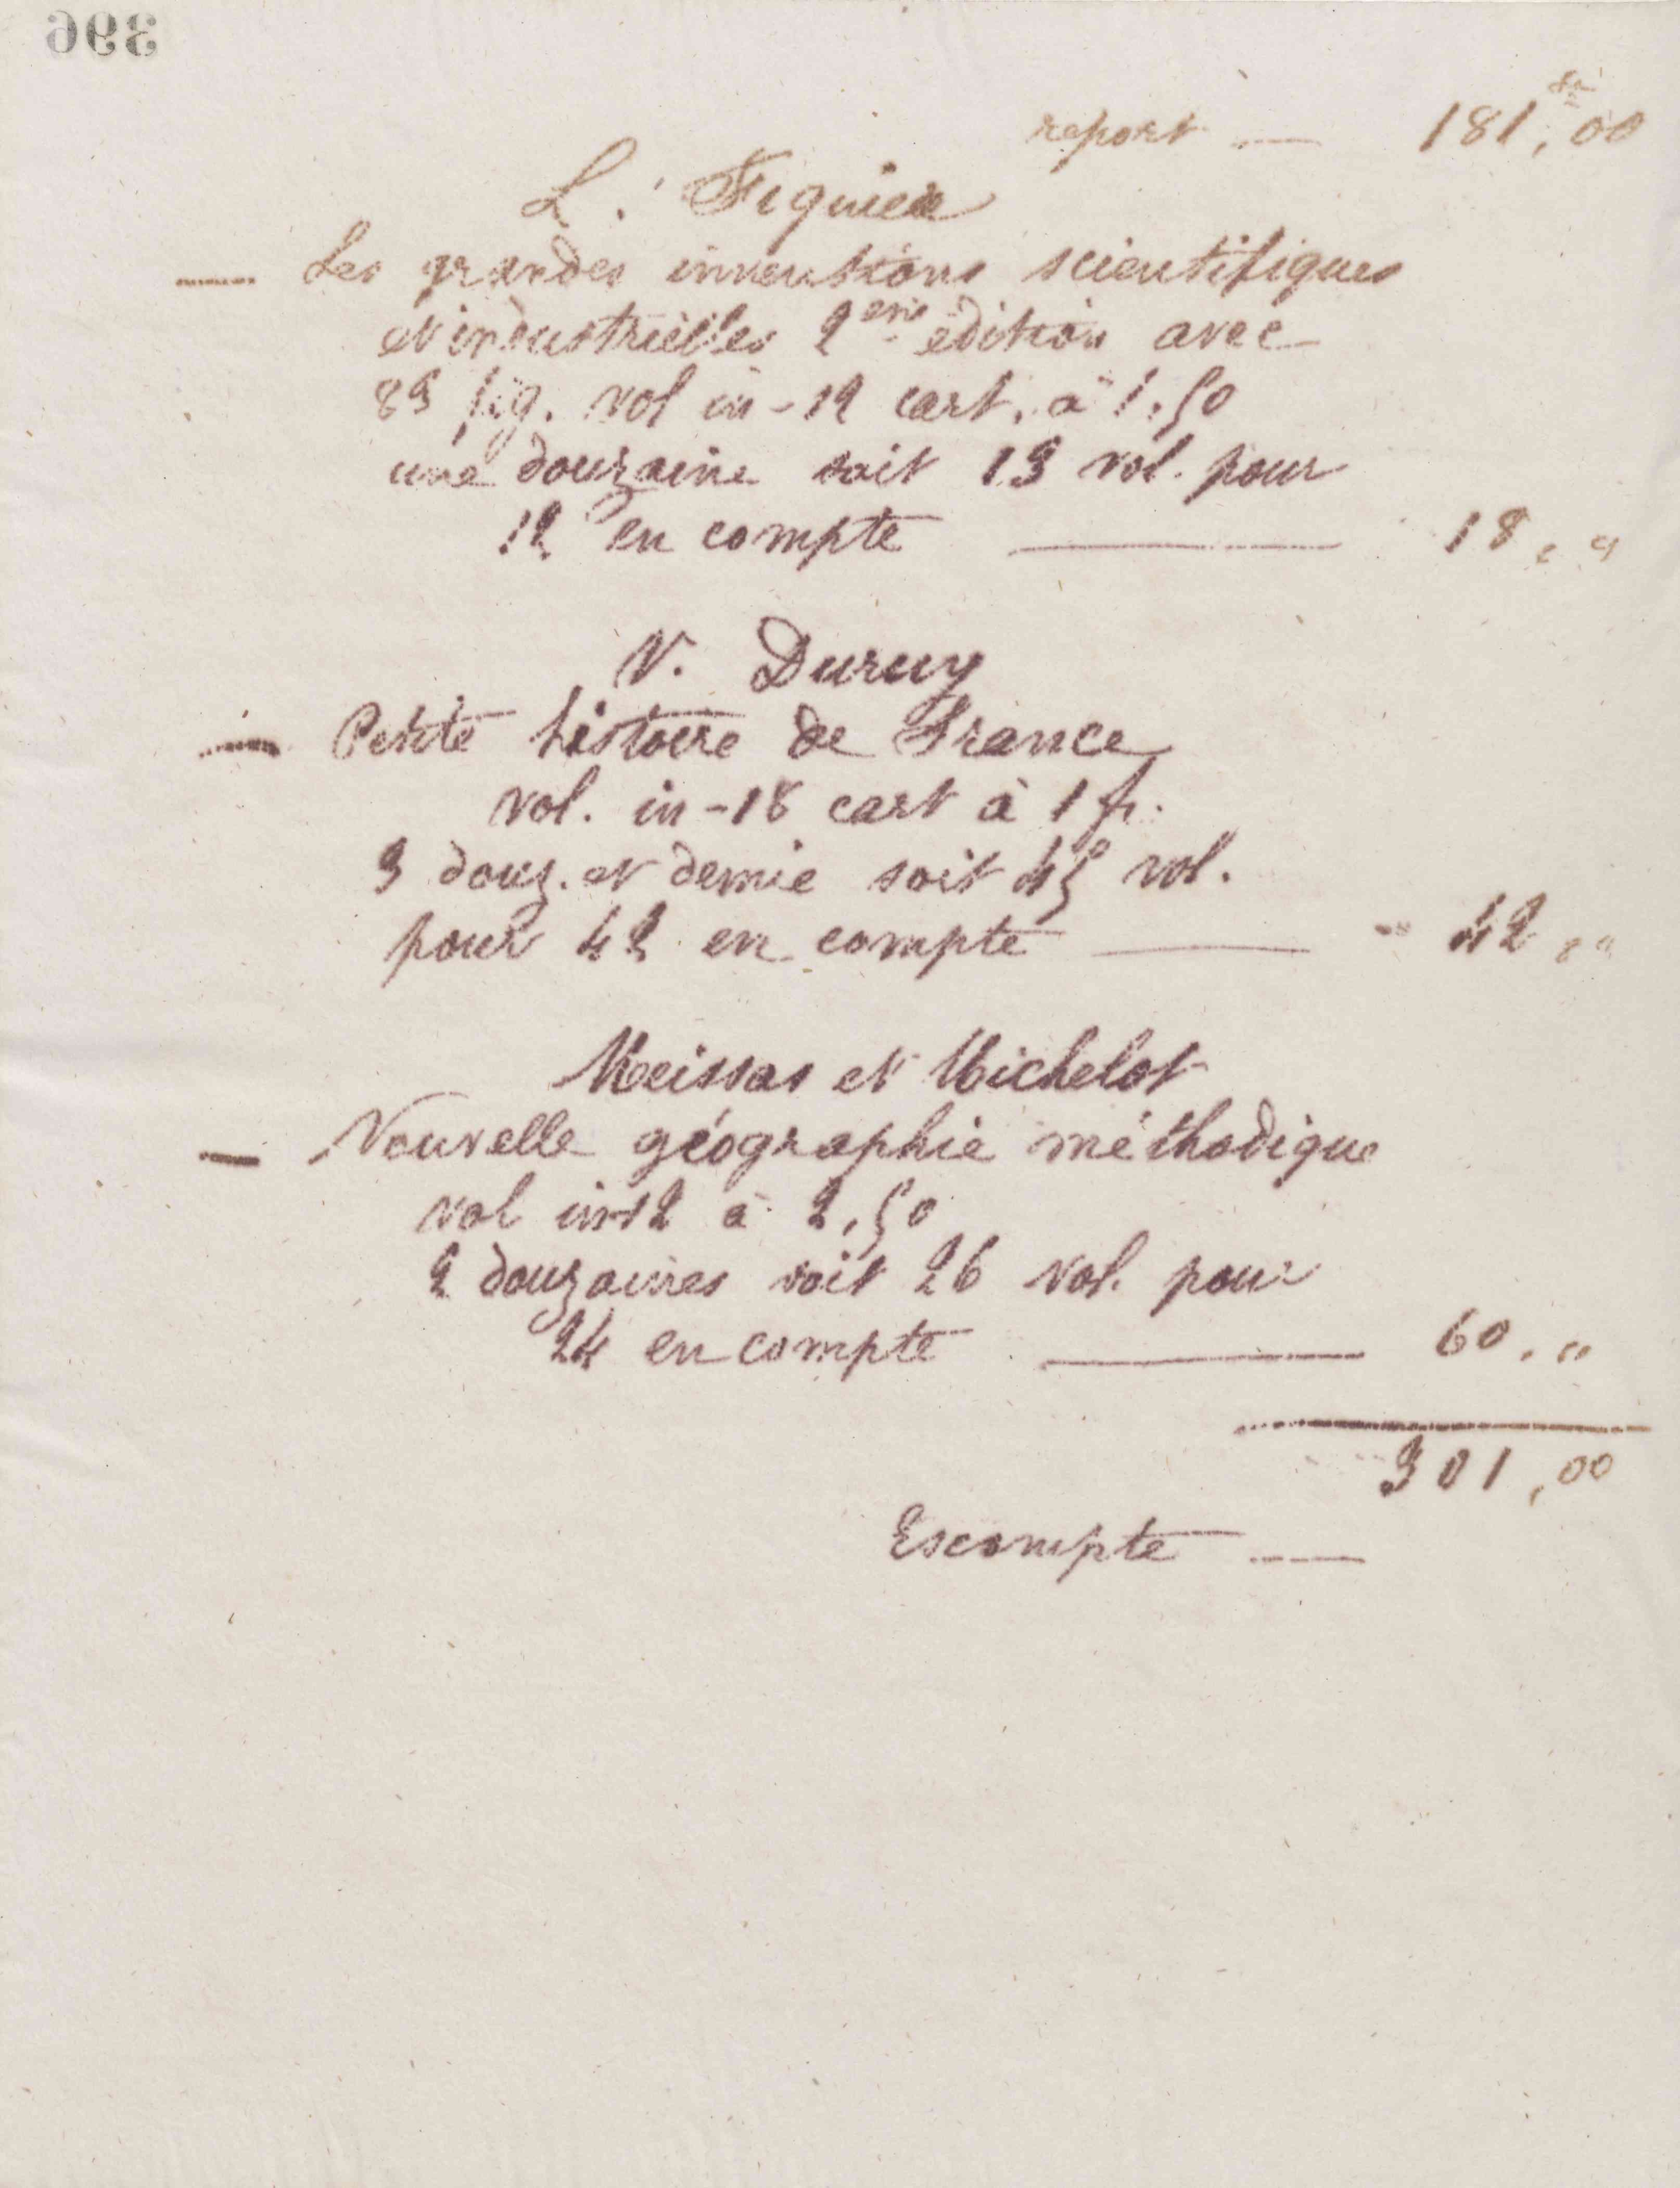 396
report — 181,00
fr
L. Figuier
— Les grandes inventions scientifiques
et industrielles 2eme édition avec
83 fig. vol in-12 cart. à 1,50
une douzaine soit 13 vol. pour
12 en compte — 18,"
V. Duruy
— Petite histoire de France
vol. in-18 cart à 1 fr.
3 douz. et demie soit 45 vol.
pour 42 en compte — 42,"
Meissas et Michelot
— Nouvelle géographie méthodique
vol in-12 à 2,50
2 douzaines soit 26 vol. pour
24 en compte — 60,"
301,00
Escompte —